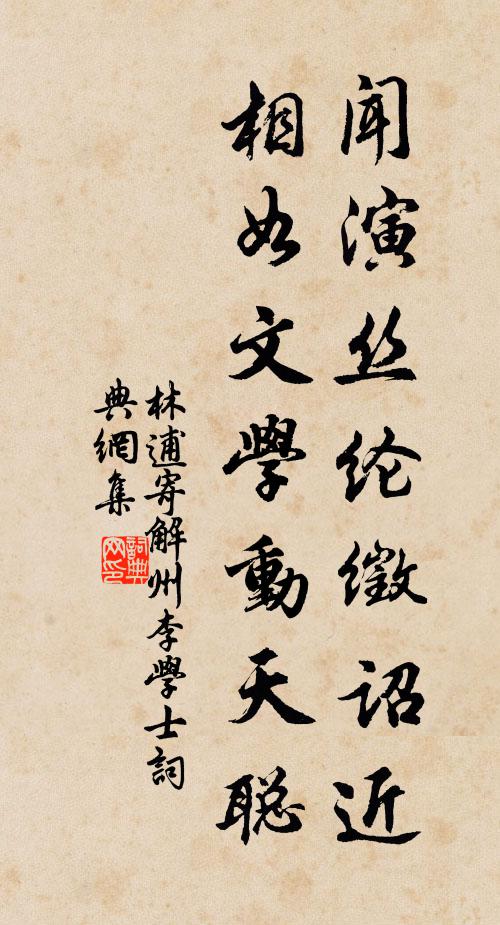 闻演丝纶徵诏近
相如文學動天聪
林逋寄解州李學士詞
典網集
詞典
网印